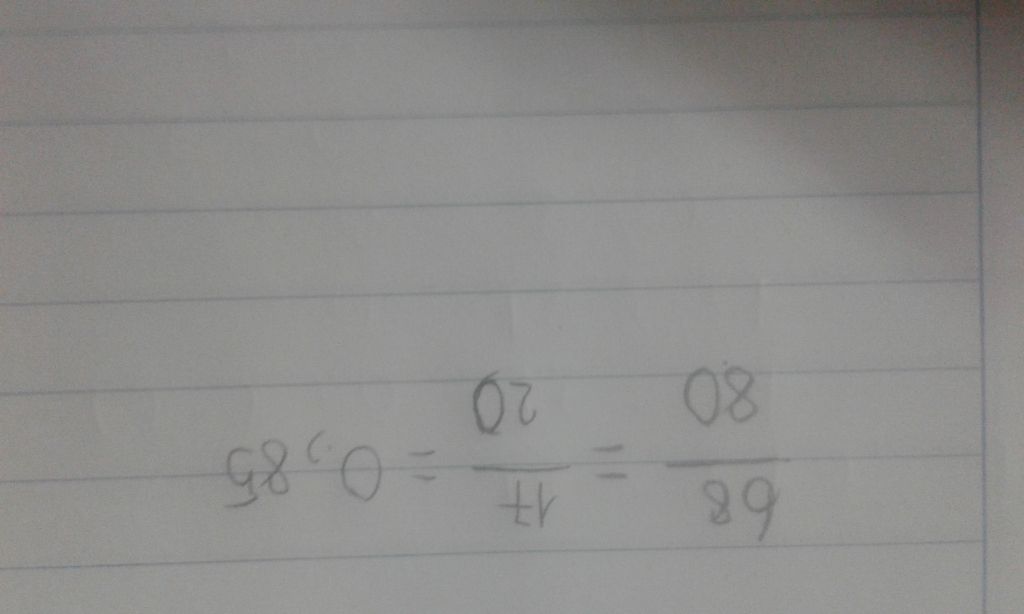 68/80 = 17/20 = 0,85